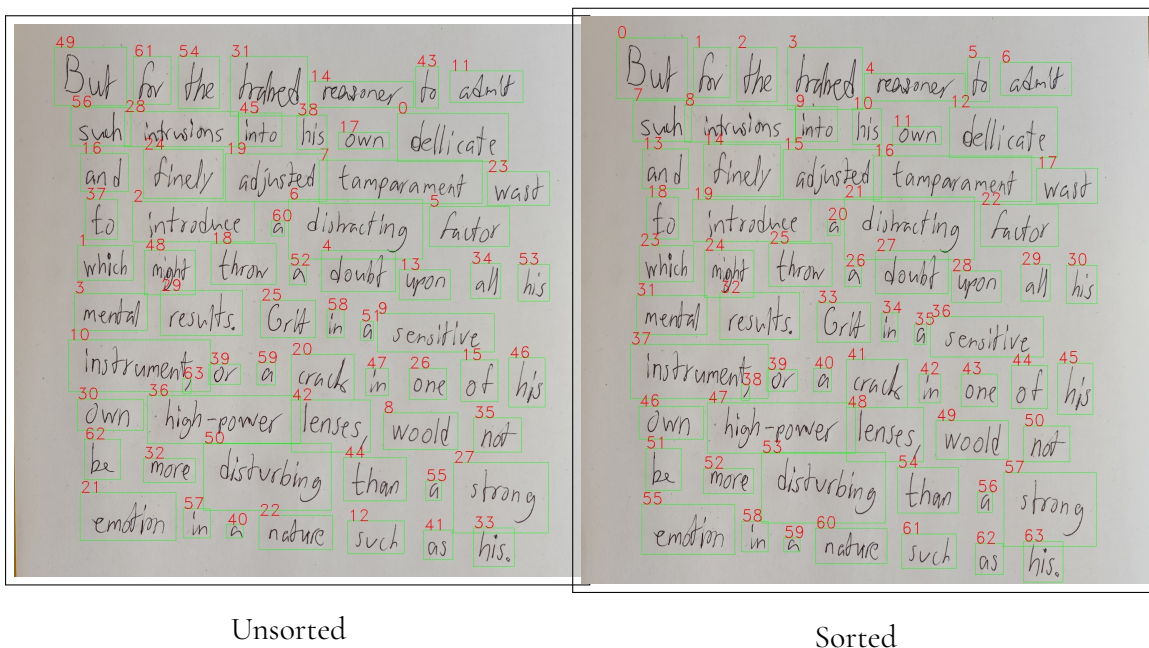 49 61 54 31 14 43 11
But for the trained reasoner to admit
56 28 45 38 17 0
such intrusions into his own dellicate
16 24 19 7 23
and finely adjusted tamparament wast
37 2 60 6 5
to introduce a distracting factor
1 48 18 52 4 13 34 53
which might throw a doubt upon all his
3 29 25 58 51 9
mental results. Grit in a sensitive
10 63 39 59 20 47 26 15 46
instrument, or a crack in one of his
30 36 42 8 35
own high-power lenses, woold not
62 32 50 44 55 27
be more disturbing than a strong
21 57 40 22 12 41 33
emotion in a nature such as his.
Unsorted
0 1 2 3 4 5 6
But for the trained reasoner to admit
7 8 9 10 11 12
such intrusions into his own dellicate
13 14 15 16 17
and finely adjusted tamparament wast
18 19 20 21 22
to introduce a distracting factor
23 24 25 26 27 28 29 30
which might throw a doubt upon all his
31 32 33 34 35 36
mental results. Grit in a sensitive
37 38 39 40 41 42 43 44 45
instrument, or a crack in one of his
46 47 48 49 50
own high-power lenses, woold not
51 52 53 54 56 57
be more disturbing than a strong
55 58 59 60 61 62 63
emotion in a nature such as his.
Sorted